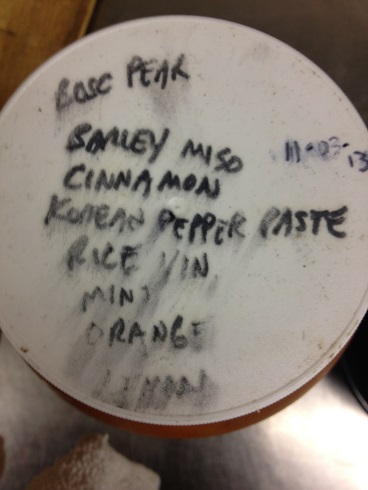 BOSC PEAR
BARLEY MISO
11-03-13
CINNAMON
KOREAN PEPPER PASTE
RICE VIN
MINT
ORANGE
LEMON